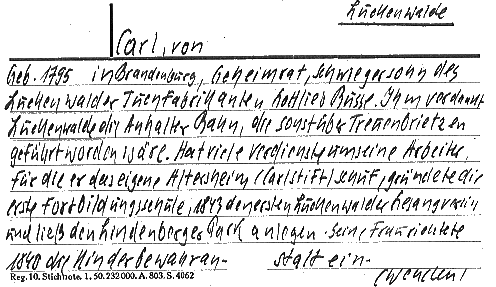 Luckenwalde
Carl, von
Geb. 1795 in Brandenburg, Geheimrat, Schwiegersohn des
Luckenwalder Tuchfabrikanten Gottlieb Busse. Ihm verdankt
Luckenwalde die Anhalter Bahn, die sonst über Treuenbrietzen
geführt worden wäre. Hat viele Verdienste um seine Arbeiter,
für die er das eigene Altersheim (Carlstift) schuf, gründete die
erste Fortbildungsschule, 1843 den ersten Luckenwalder Gesangverein
und ließ den Hindenburger Park anlegen. Seine Frau richtete
1840 die Kinderbewahran- stalt ein.
Reg. 10. Stichnote. 1. 50. 232000. A. 803. S. 4062